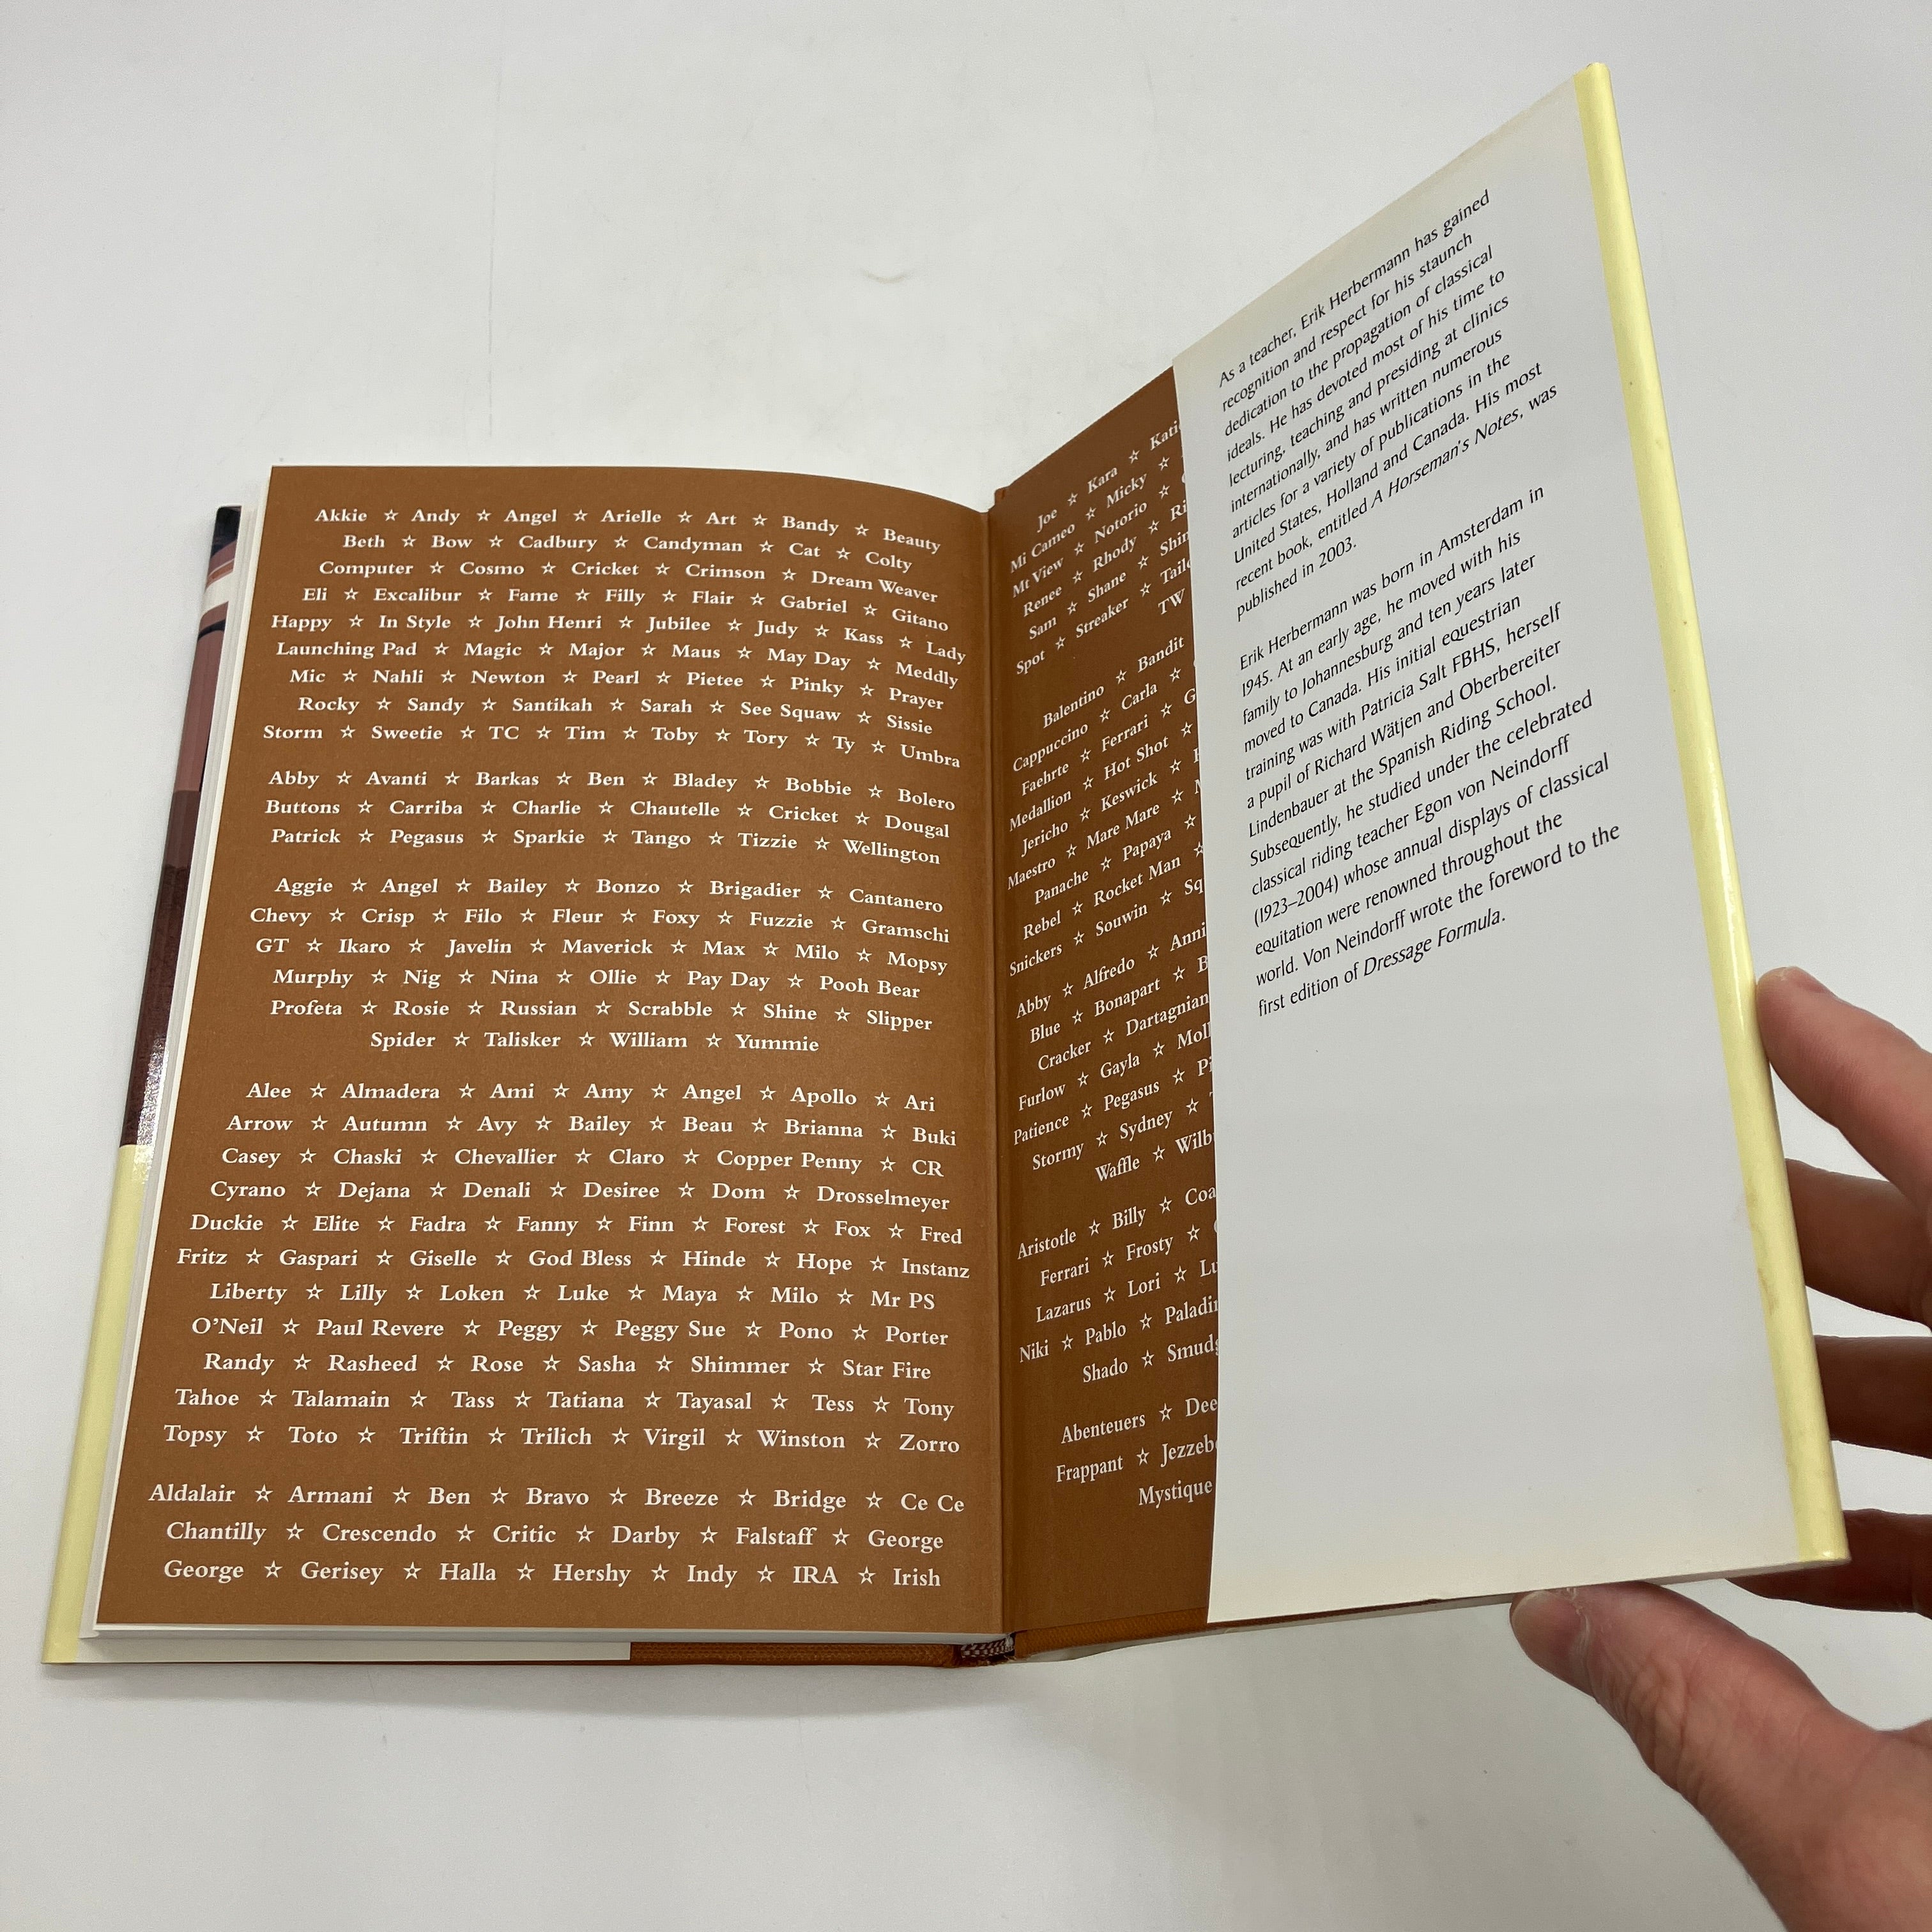 Akkie ☆ Andy ☆ Angel ☆ Arielle ☆ Art ☆ Bandy ☆ Beauty
Beth ☆ Bow ☆ Cadbury ☆ Candyman ☆ Cat ☆ Colty
Computer ☆ Cosmo ☆ Cricket ☆ Crimson ☆ Dream Weaver
Eli ☆ Excalibur ☆ Fame ☆ Filly ☆ Flair ☆ Gabriel ☆ Gitano
Happy ☆ In Style ☆ John Henri ☆ Jubilee ☆ Judy ☆ Kass ☆ Lady
Launching Pad ☆ Magic ☆ Major ☆ Maus ☆ May Day ☆ Meddly
Mic ☆ Nahli ☆ Newton ☆ Pearl ☆ Pietee ☆ Pinky ☆ Prayer
Rocky ☆ Sandy ☆ Santikah ☆ Sarah ☆ See Squaw ☆ Sissie
Storm ☆ Sweetie ☆ TC ☆ Tim ☆ Toby ☆ Tory ☆ Ty ☆ Umbra
Abby ☆ Avanti ☆ Barkas ☆ Ben ☆ Bladey ☆ Bobbie ☆ Bolero
Buttons ☆ Carriba ☆ Charlie ☆ Chautelle ☆ Cricket ☆ Dougal
Patrick ☆ Pegasus ☆ Sparkie ☆ Tango ☆ Tizzie ☆ Wellington
Aggie ☆ Angel ☆ Bailey ☆ Bonzo ☆ Brigadier ☆ Cantanero
Chevy ☆ Crisp ☆ Filo ☆ Fleur ☆ Foxy ☆ Fuzzie ☆ Gramschi
GT ☆ Ikaro ☆ Javelin ☆ Maverick ☆ Max ☆ Milo ☆ Mopsy
Murphy ☆ Nig ☆ Nina ☆ Ollie ☆ Pay Day ☆ Pooh Bear
Profeta ☆ Rosie ☆ Russian ☆ Scrabble ☆ Shine ☆ Slipper
Spider ☆ Talisker ☆ William ☆ Yummie
Alee ☆ Almadera ☆ Ami ☆ Amy ☆ Angel ☆ Apollo ☆ Ari
Arrow ☆ Autumn ☆ Avy ☆ Bailey ☆ Beau ☆ Brianna ☆ Buki
Casey ☆ Chaski ☆ Chevallier ☆ Claro ☆ Copper Penny ☆ CR
Cyrano ☆ Dejana ☆ Denali ☆ Desiree ☆ Dom ☆ Drosselmeyer
Duckie ☆ Elite ☆ Fadra ☆ Fanny ☆ Finn ☆ Forest ☆ Fox ☆ Fred
Fritz ☆ Gaspari ☆ Giselle ☆ God Bless ☆ Hinde ☆ Hope ☆ Instanz
Liberty ☆ Lilly ☆ Loken ☆ Luke ☆ Maya ☆ Milo ☆ Mr PS
O'Neil ☆ Paul Revere ☆ Peggy ☆ Peggy Sue ☆ Pono ☆ Porter
Randy ☆ Rasheed ☆ Rose ☆ Sasha ☆ Shimmer ☆ Star Fire
Tahoe ☆ Talamain ☆ Tass ☆ Tatiana ☆ Tayasal ☆ Tess ☆ Tony
Topsy ☆ Toto ☆ Triftin ☆ Trilich ☆ Virgil ☆ Winston ☆ Zorro
Aldalair ☆ Armani ☆ Ben ☆ Bravo ☆ Breeze ☆ Bridge ☆ Ce Ce
Chantilly ☆ Crescendo ☆ Critic ☆ Darby ☆ Falstaff ☆ George
George ☆ Gerisey ☆ Halla ☆ Hershy ☆ Indy ☆ IRA ☆ Irish
Joe ☆ Kara ☆
Mi Cameo ☆ Micky ☆
Mt View ☆ Notorio ☆
Renee ☆ Rhody ☆
Sam ☆ Shane ☆
Spot ☆ Streaker ☆
TW
Balentino ☆ Bandit
Cappuccino ☆ Carla ☆
Faehrte ☆ Ferrari ☆
Medallion ☆ Hot Shot ☆
Jericho ☆ Keswick ☆
Maestro ☆ Mare Mare ☆
Panache ☆ Papaya ☆
Rebel ☆ Rocket Man ☆
Snickers ☆ Souwin ☆
Abby ☆ Alfredo ☆
Blue ☆ Bonapart ☆
Cracker ☆ Dartagnian
Furlow ☆ Gayla ☆
Patience ☆ Pegasus ☆
Stormy ☆ Sydney ☆
Waffle ☆
Aristotle ☆ Billy ☆
Ferrari ☆ Frosty ☆
Lazarus ☆ Lori ☆
Niki ☆ Pablo ☆
Shado ☆
Abenteuers ☆
Frappant ☆
Mystique
As a teacher, Erik Herbermann has gained
recognition and respect for his staunch
dedication to the propagation of classical
ideals. He has devoted most of his time to
lecturing, teaching and presiding at clinics
internationally, and has written numerous
articles for a variety of publications in the
United States, Holland and Canada. His most
recent book, entitled A Horseman's Notes, was
published in 2003.
Erik Herbermann was born in Amsterdam in
1945. At an early age, he moved with his
family to Johannesburg and ten years later
moved to Canada. His initial equestrian
training was with Patricia Salt FBHS, herself
a pupil of Richard Wätjen and Oberbereiter
Lindenbauer at the Spanish Riding School.
Subsequently, he studied under the celebrated
classical riding teacher Egon von Neindorff
(1923–2004) whose annual displays of classical
equitation were renowned throughout the
world. Von Neindorff wrote the foreword to the
first edition of Dressage Formula.